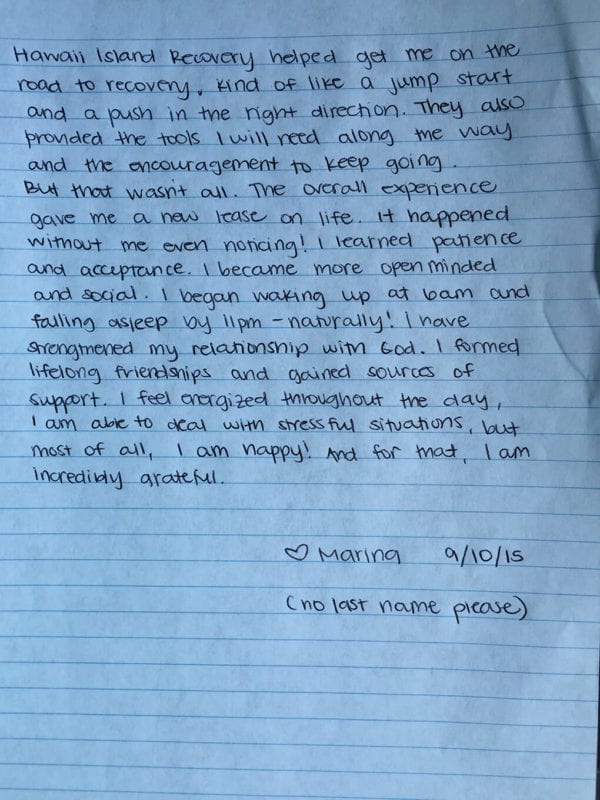 Hawaii Island Recovery helped get me on the
road to recovery, kind of like a jump start
and a push in the right direction. They also
provided the tools I will need along the way
and the encouragement to keep going.
But that wasn't all. The overall experience
gave me a new lease on life. It happened
without me even noticing! I learned patience
and acceptance. I became more open minded
and social. I began waking up at 6am and
falling asleep by 11pm - naturally! I have
strengthened my relationship with God. I formed
lifelong friendships and gained sources of
support. I feel energized throughout the day,
I am able to deal with stressful situations, but
most of all, I am happy! And for that, I am
incredibly grateful.
♡ Marina 9/10/15
(no last name please)